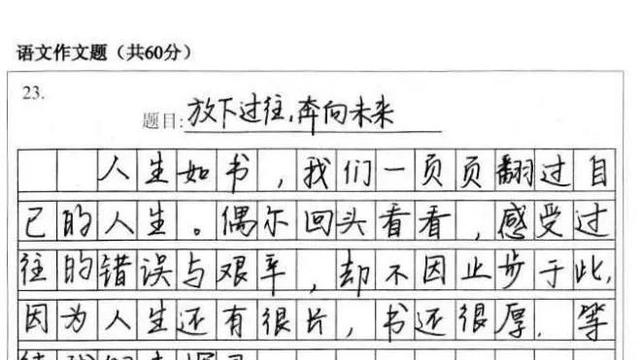 语文作文题（共60分）
23.
题目:放下过往,奔向未来
人生如书,我们一页页翻过自
己的人生。偶尔回头看看,感受过
往的错误与艰辛,却不因止步于此,
因为人生还有很长,书还很厚.等